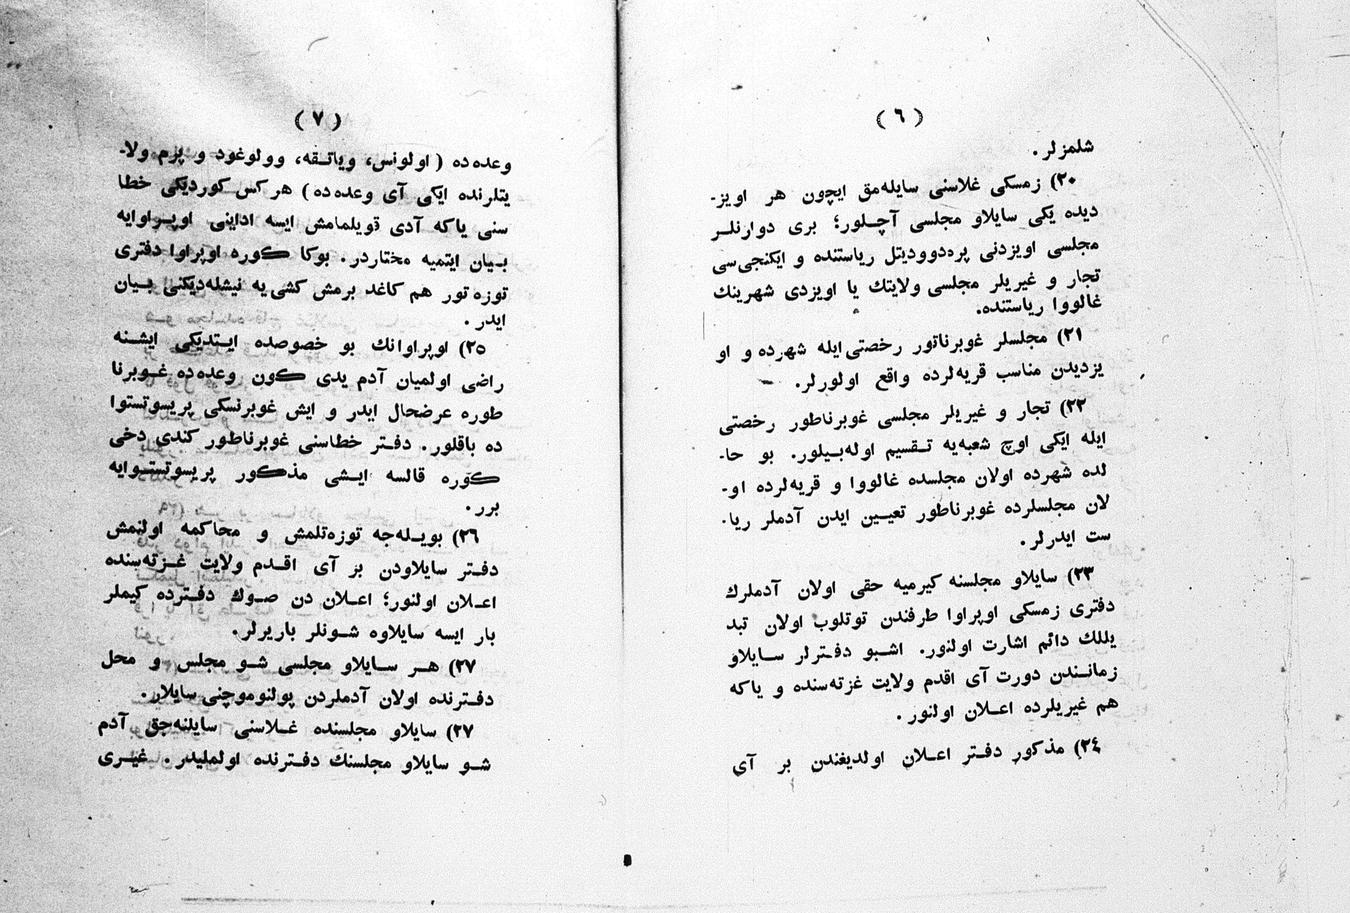 (٦)
شلمزلر.
٢٠) زمسكی غلاسنی سایله‌مق ایچون هر اویز-
دیده یكی سایلاو مجلسی آچلور؛ بری دوارنلر
مجلسی اویزدنی پره‌دوودیتل ریاستنده و ایكنجی‌سی
تجار و غیریلر مجلسی ولایتك یا اویزدی شهرینك
غالووا ریاستنده.
٢١) مجلسلر غوبرناتور رخصتی ایله شهرده و او
یزدیدن مناسب قریه‌لرده واقع اولورلر.
٢٢) تجار و غیریلر مجلسی غوبرناطور رخصتی
ایله ایكی اوچ شعبه‌یه تقسیم اوله‌بیلور. بو حا-
لده شهرده اولان مجلسده غالووا و قریه‌لرده او-
لان مجلسلرده غوبرناطور تعیین ایدن آدملر ریا-
ست ایدرلر.
٢٣) سایلاو مجلسنه كیرمیه حقی اولان آدملرك
دفتری زمسكی اوپراوا طرفندن توتلوب اولان تبد
یللك دائم اشارت اولنور. اشبو دفترلر سایلاو
زمانندن دورت آی اقدم ولایت غزته‌سنده و یاكه
هم غیریلرده اعلان اولنور.
٢٤) مذكور دفتر اعلان اولدیغندن بر آی
(٧)
وعده‌ده (اولونس، ویاتقه، وولوغود و پرم ولا-
یتلرنده ایكی آی وعده‌ده) هركس كوردیكی خطا
سنی یاكه آدی قویلمامش ایسه ادایئی اوپراوایه
بیان ایتمیه مختاردر. بوكا كوره اوپراوا دفتری
توزه‌تور هم كاغد برمش كشی‌یه نیشله‌دیكنی بیان
ایدر.
٢٥) اوپراوانك بو خصوصده ایتدیكی ایشنه
راضی اولمیان آدم یدی كون وعده‌ده غوبرنا
طوره عرضحال ایدر و ایش غوبرنسكی پریسوتستوا
ده باقلور. دفتر خطاسنی غوبرناطور كندی دخی
كوره قالسه ایشی مذكور پریسوتستوایه
برر.
٢٦) بویله‌جه توزه‌تلمش و محاكمه اولنمش
دفتر سایلاودن بر آی اقدم ولایت غزته‌سنده
اعلان اولنور؛ اعلان دن صوك دفترده كیملر
بار ایسه سایلاوه شونلر باریرلر.
٢٧) هر سایلاو مجلسی شو مجلس و محل
دفترنده اولان آدملردن پولنوموچنی سایلار.
٢٧) سایلاو مجلسنده غلاسنی سایلنه‌جق آدم
شو سایلاو مجلسنك دفترنده اولملیدر. غیری